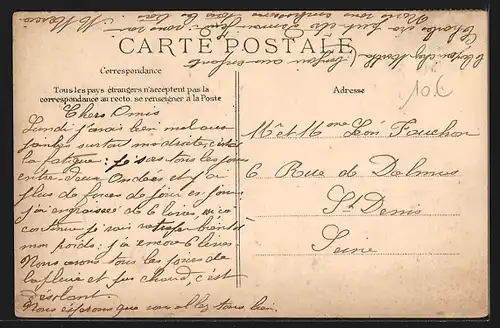 CARTE POSTALE
Correspondance
Tous les pays étrangers n'acceptent pas la
correspondance au recto. se renseigner à la Poste
Adresse
10€
Chers Amis
Lundi j'avais bien mal aux
jambes surtout ma droite, c'est
la fatigue; je sors tous les jours
entre deux Ondées et j'ai
plus de forces de jour en jour
j'ai engraissé de 6 livres si ça
continue je vais rattraper bientôt
mon poids; j'ai encore 6 livres.
Nous avons tous les jours de
la pluie et pas chaud, c'est
désolant.
Nous espérons que vous allez tous bien.
Mr et Mme Léon Fauchon
6 Rue de Dalmus
St Denis
Seine